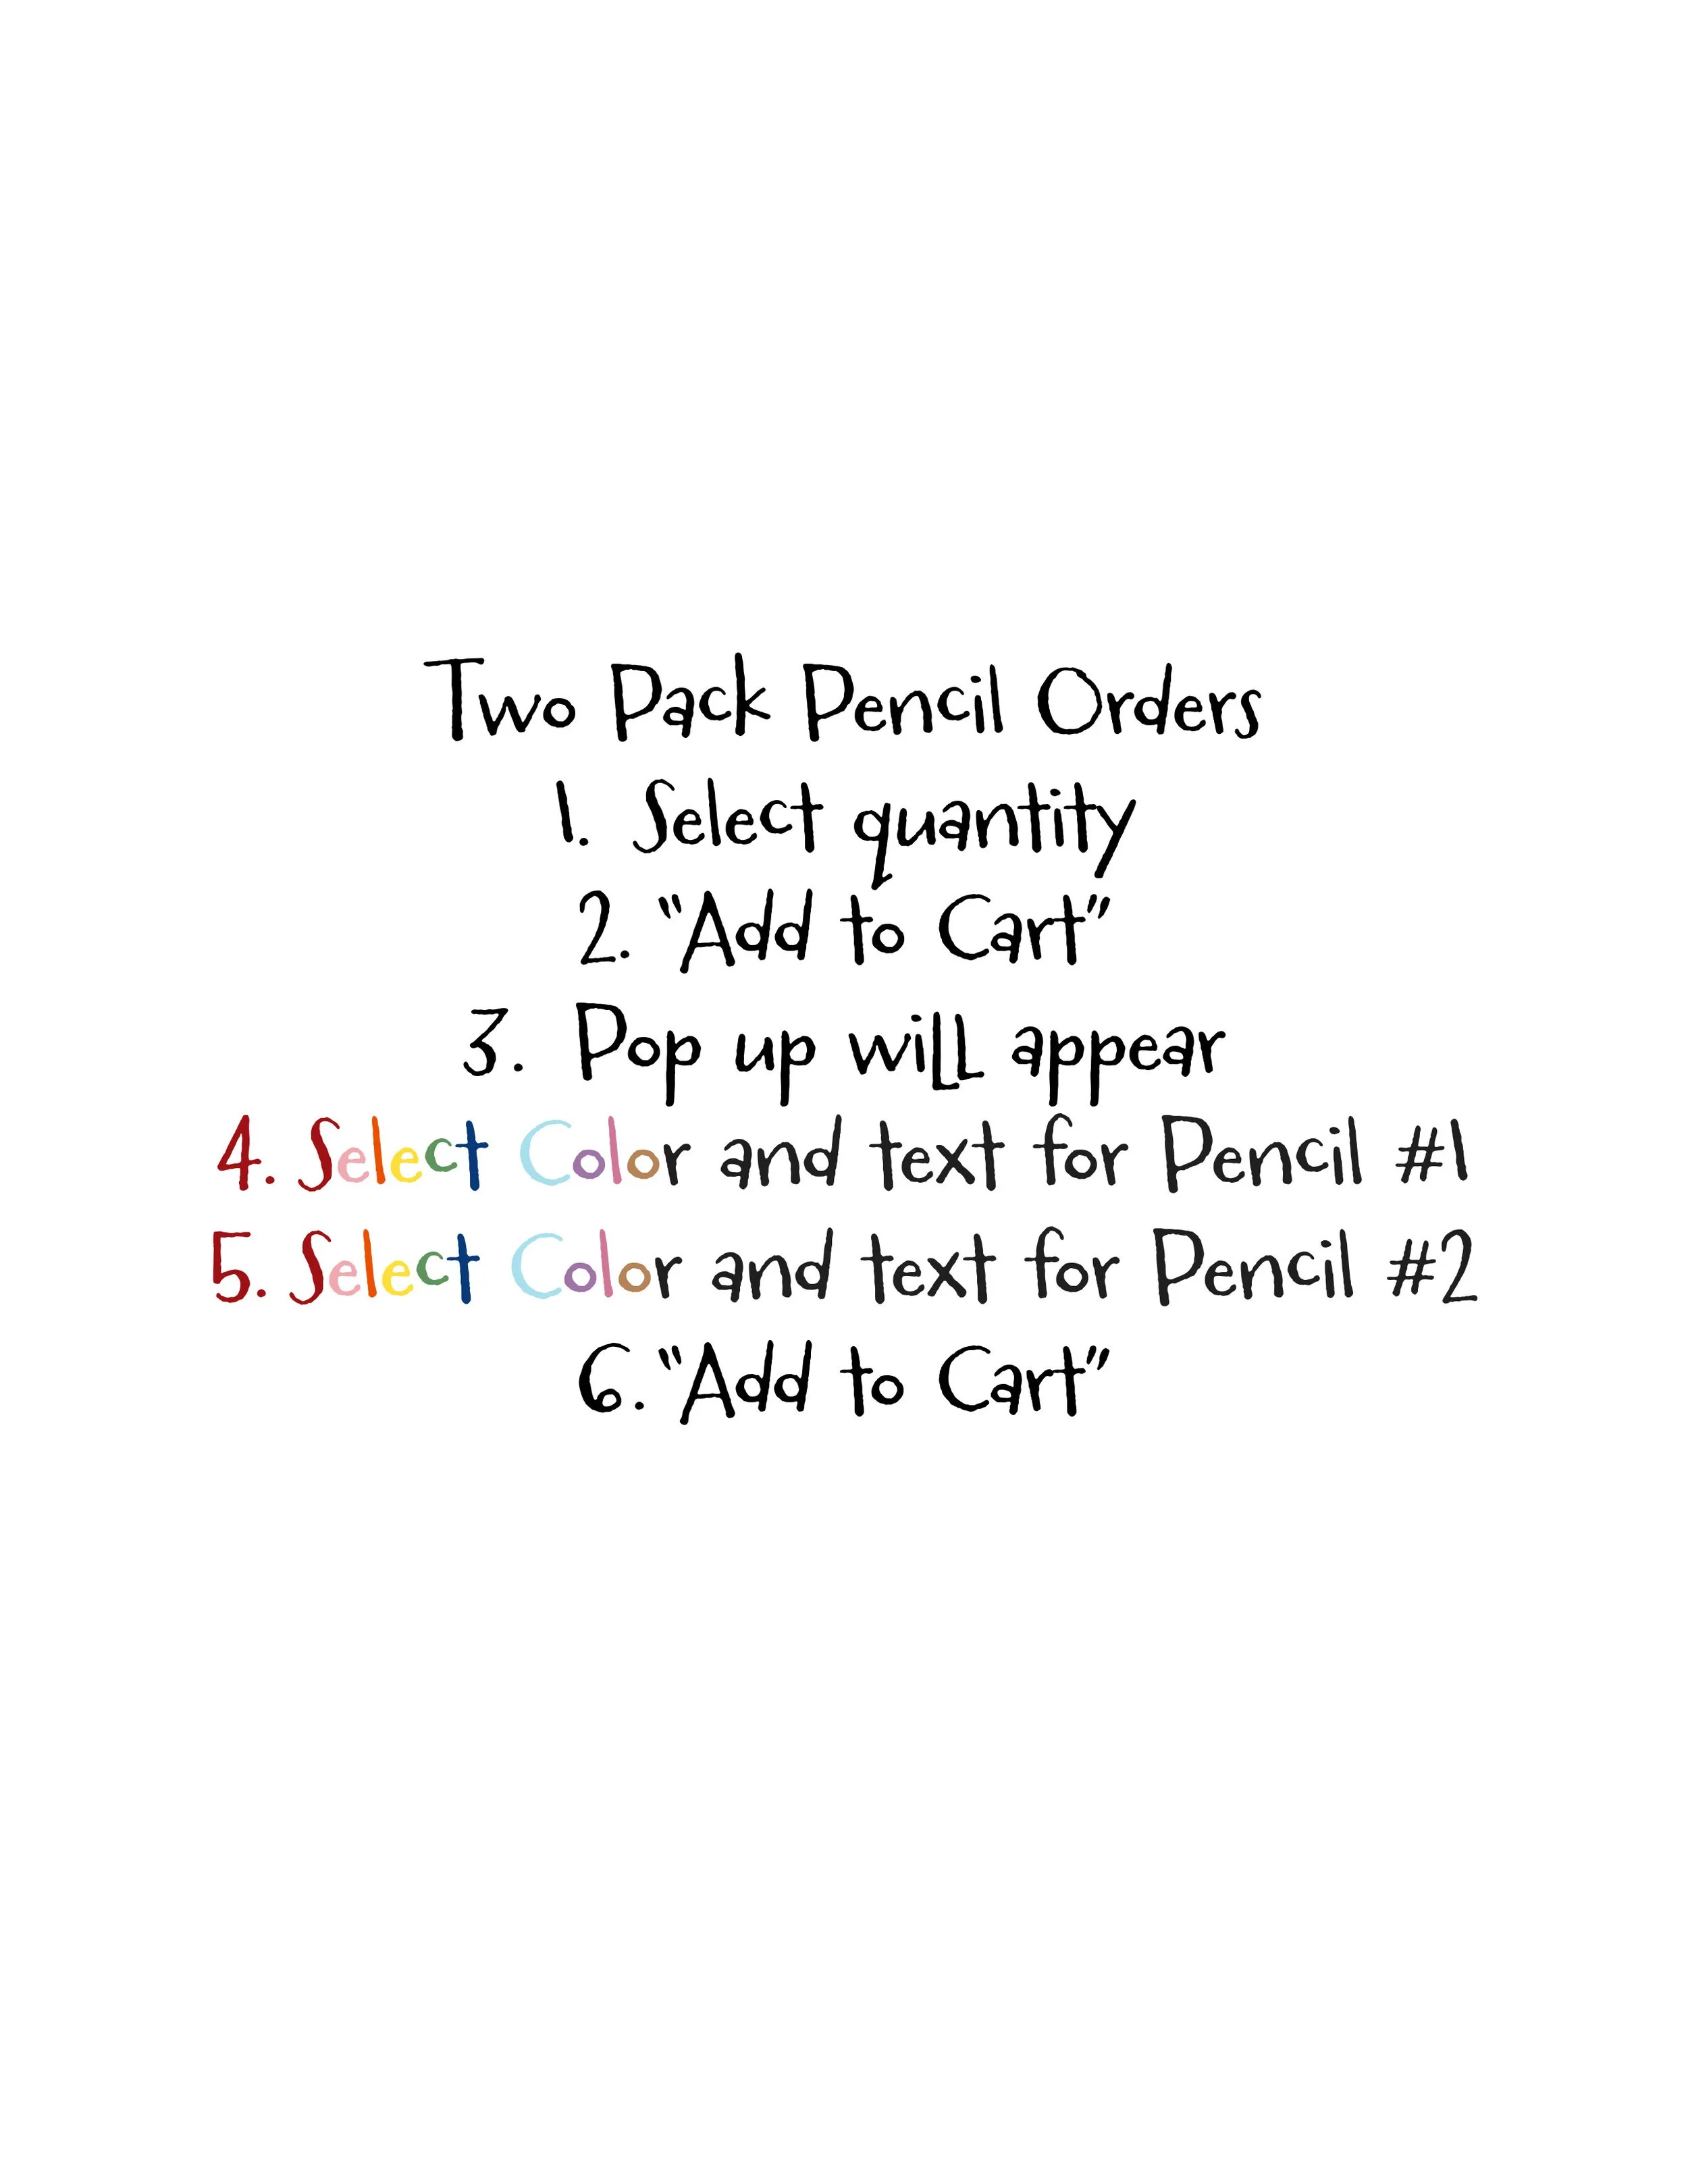 Two Pack Pencil Orders
1. Select quantity
2. "Add to Cart"
3. Pop up will appear
4. Select Color and text for Pencil #1
5. Select Color and text for Pencil #2
6. "Add to Cart"